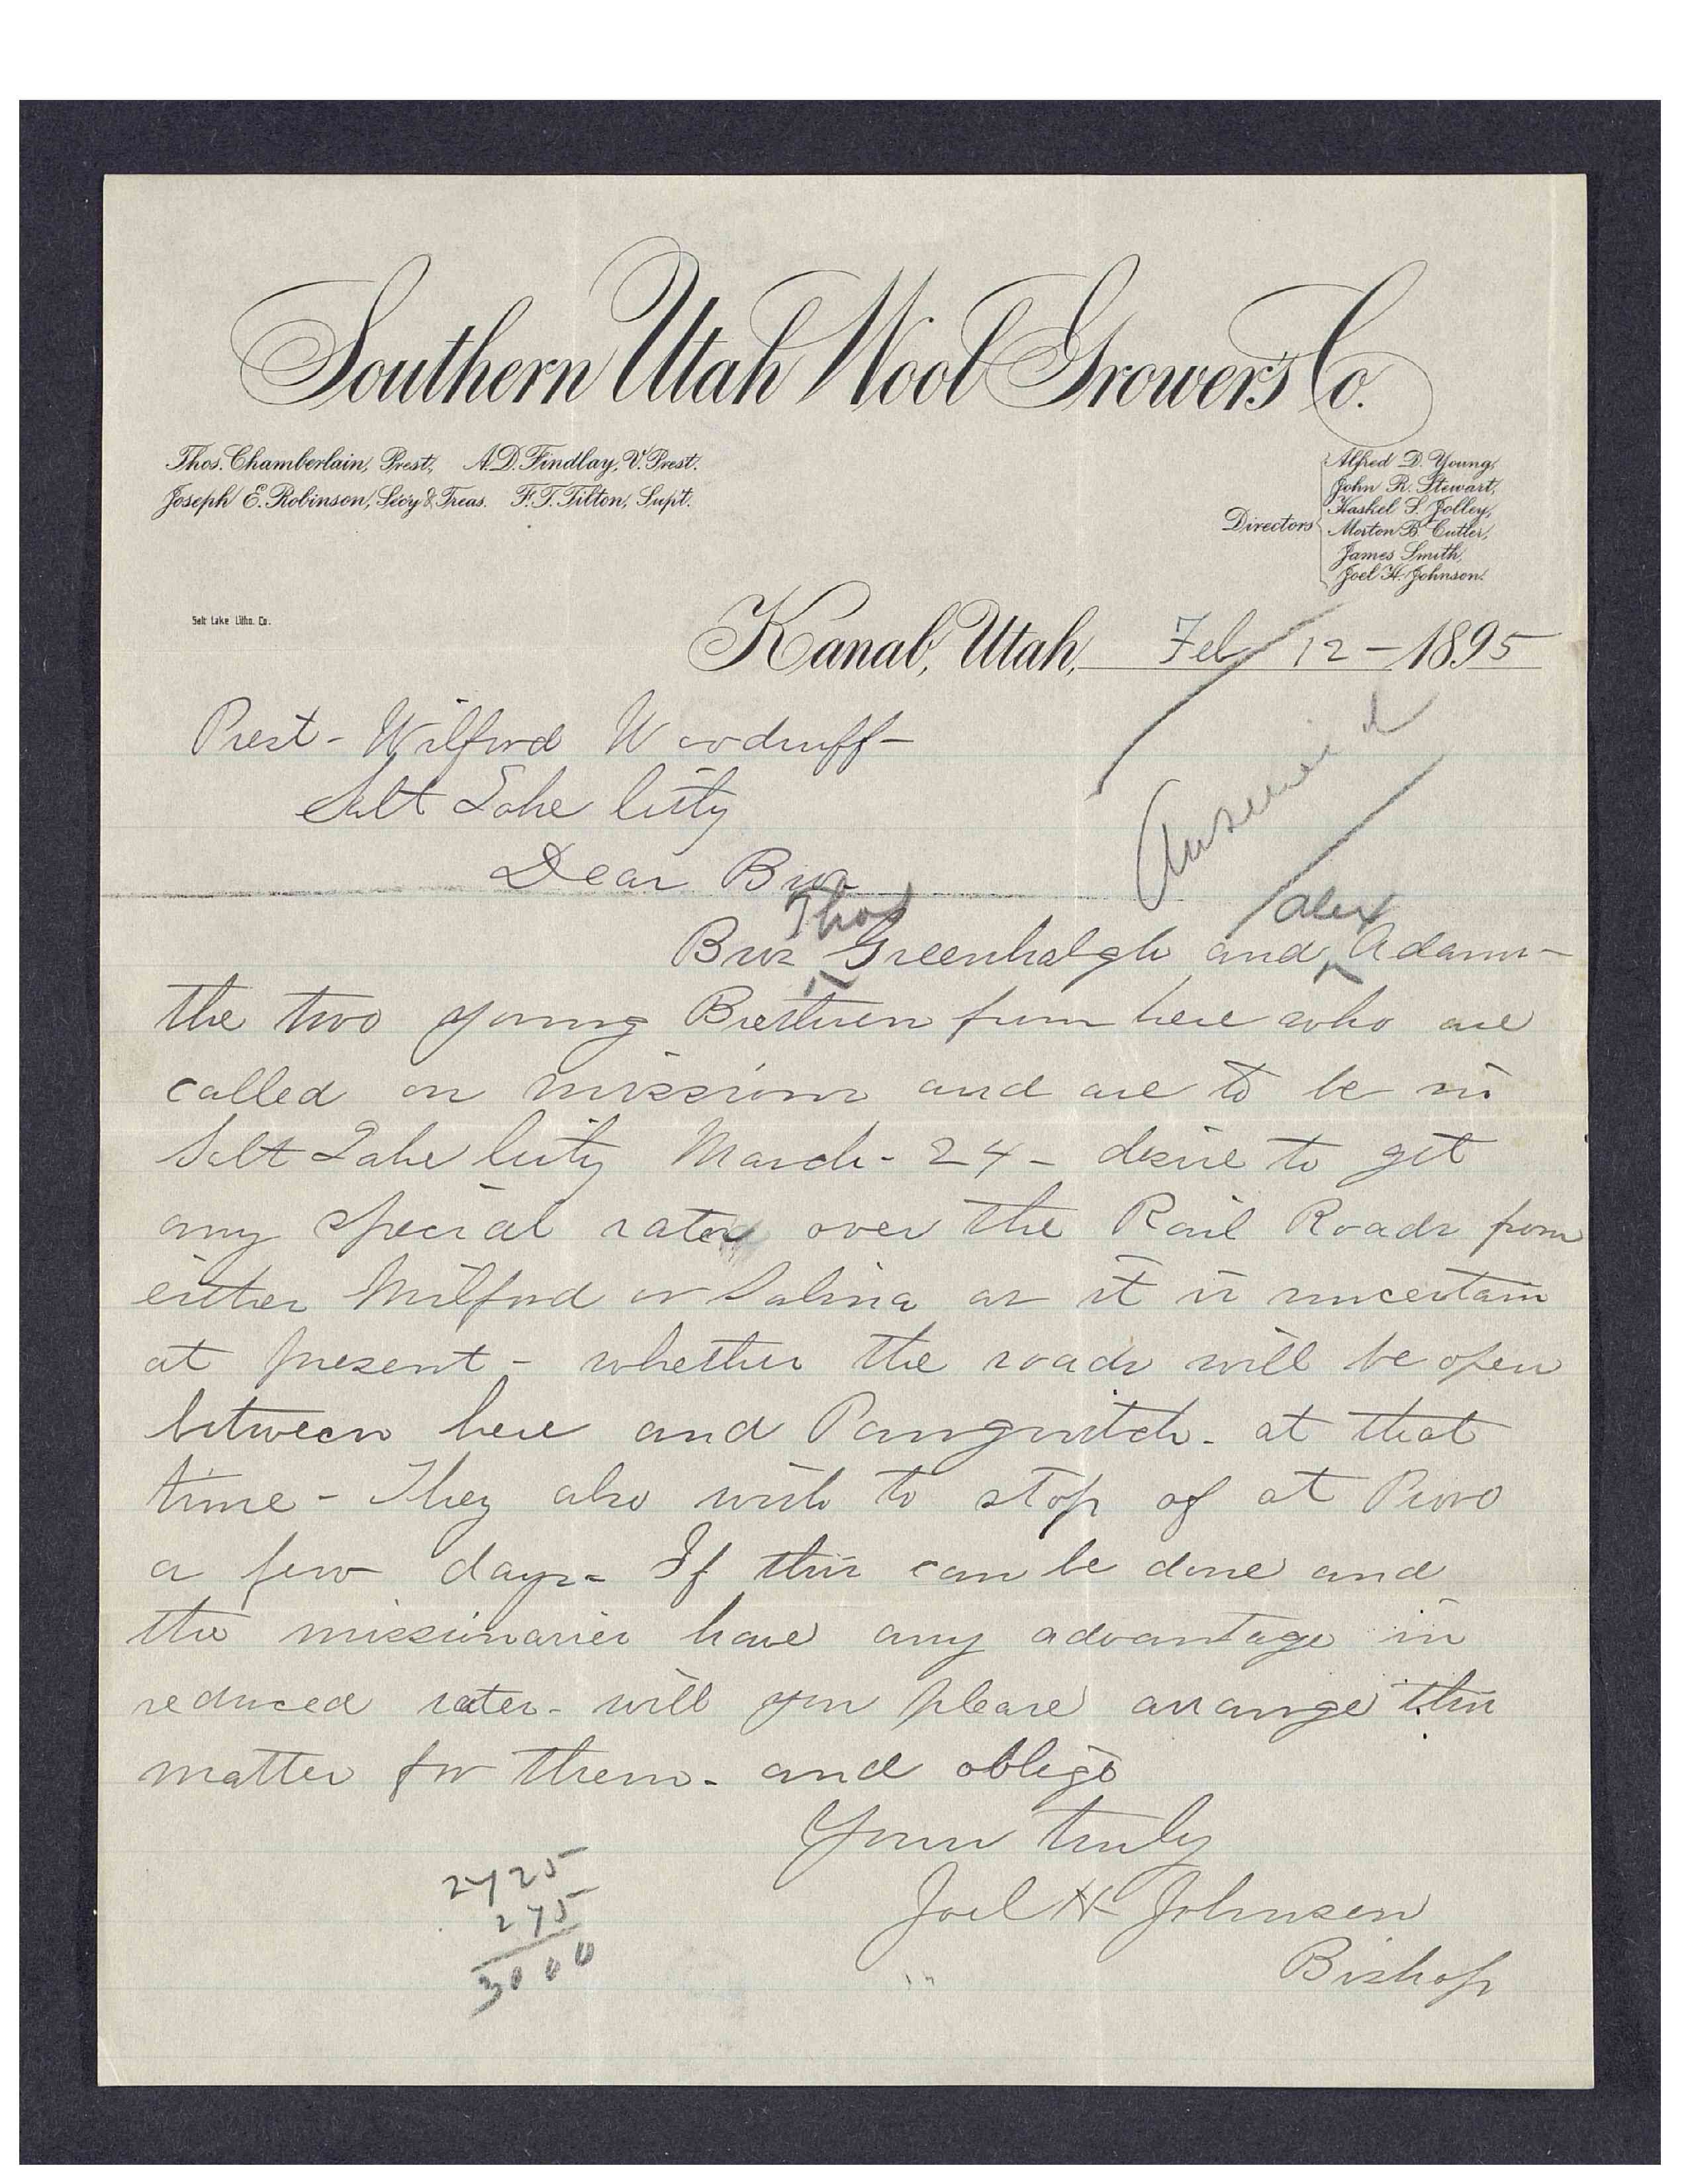 Southern Utah Wool Growers Co.
Thos. Chamberlain, Prest., A. D. Findlay, V. Prest.
Joseph E. Robinson, Sec'y & Treas. F. T. Tilton, Supt.
Directors
Alfred D. Young,
John R. Stewart,
Haskel S. Jolley,
Morton B. Cutler,
James Smith,
Joel H. Johnson.
Salt Lake Litho. Co.
Kanab, Utah, Feb 12 - 1895
Prest - Wilford Woodruff -
Salt Lake City
Answered
Dear Bro
Thos alex
Bros Greenhalgh and Adams -
the two young Brethren from here who are
called on missions and are to be in
Salt Lake City March - 24 - desire to get
any special rates over the Rail Roads from
either Milford or Salina as it is uncertain
at present - whether the roads will be open
between here and Panguitch - at that
time - They also wish to stop of at Provo
a few days - If this can be done and
the missionaries have any advantage in
reduced rates - will you please arrange this
matter for them - and oblige
Yours truly
Joel H Johnson
Bishop
2725
275
3000